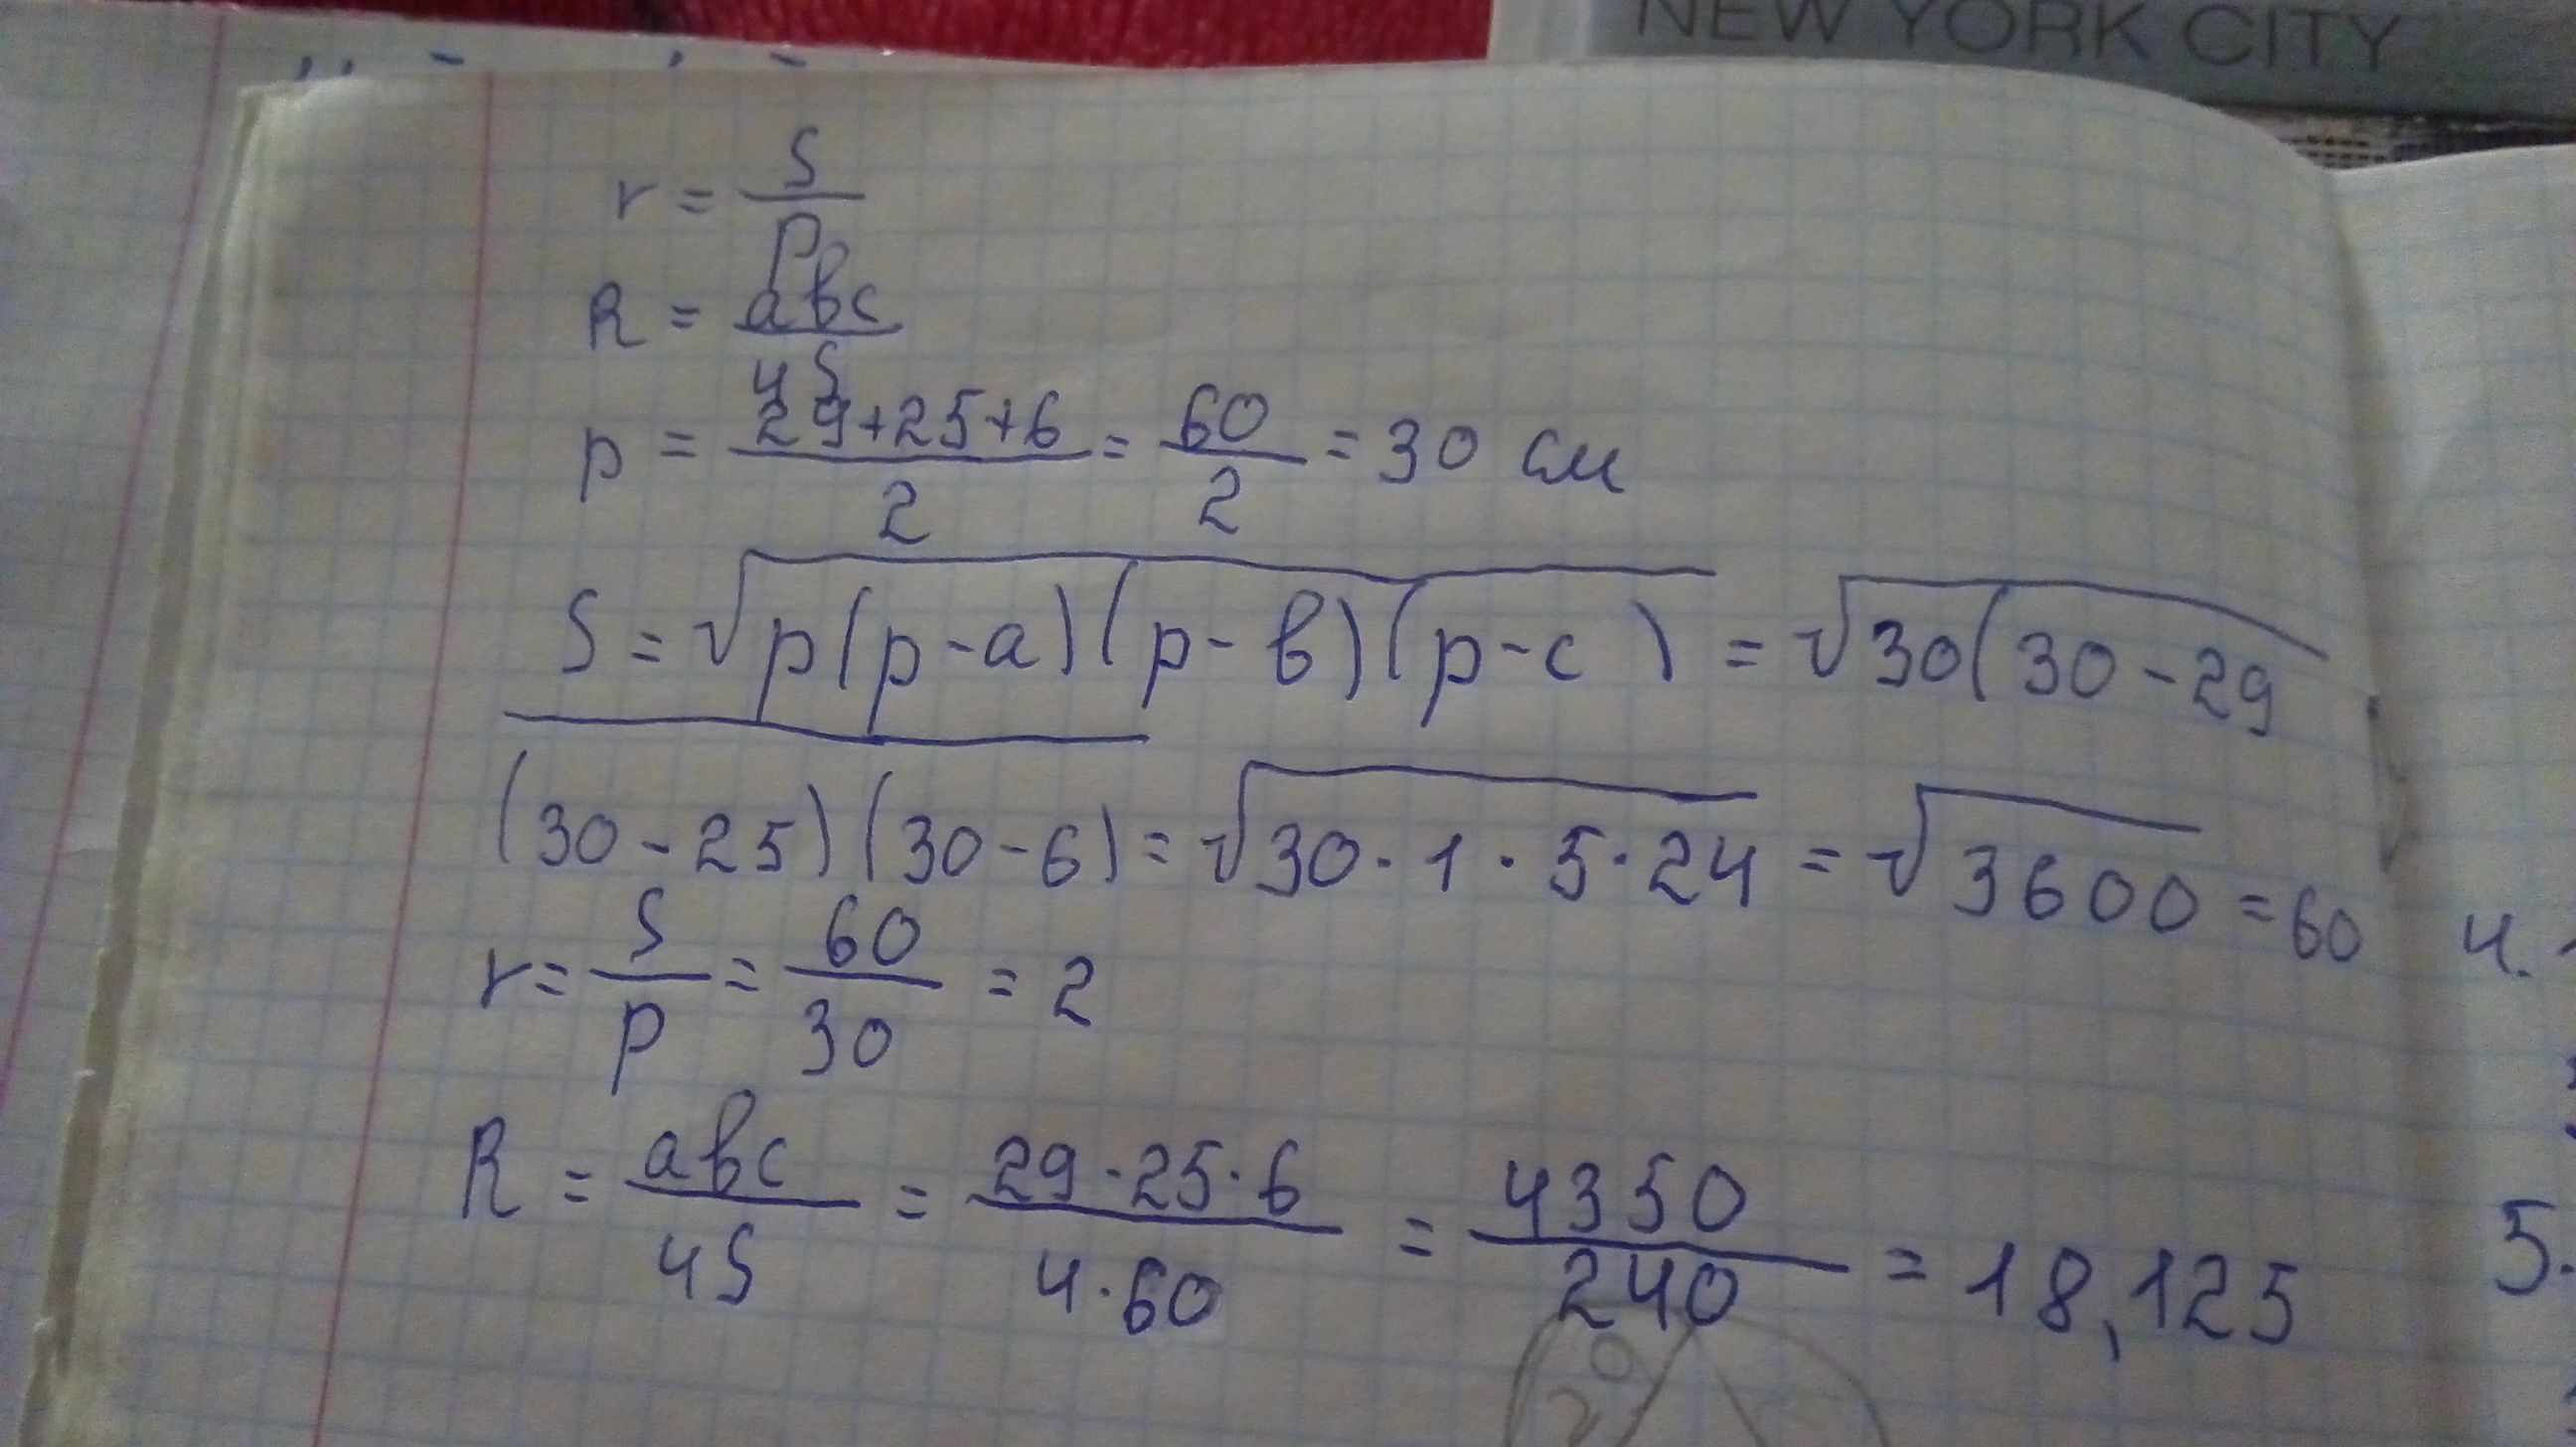 NEW YORK CITY
r = S/p
R = abc/4S
p = (29+25+6)/2 = 60/2 = 30 см
S = √p(p-a)(p-в)(p-c) = √30(30-29
(30-25)(30-6) = √30·1·5·24 = √3600 = 60
r = S/p = 60/30 = 2
R = abc/4S = 29·25·6/4·60 = 4350/240 = 18,125
4.
5.